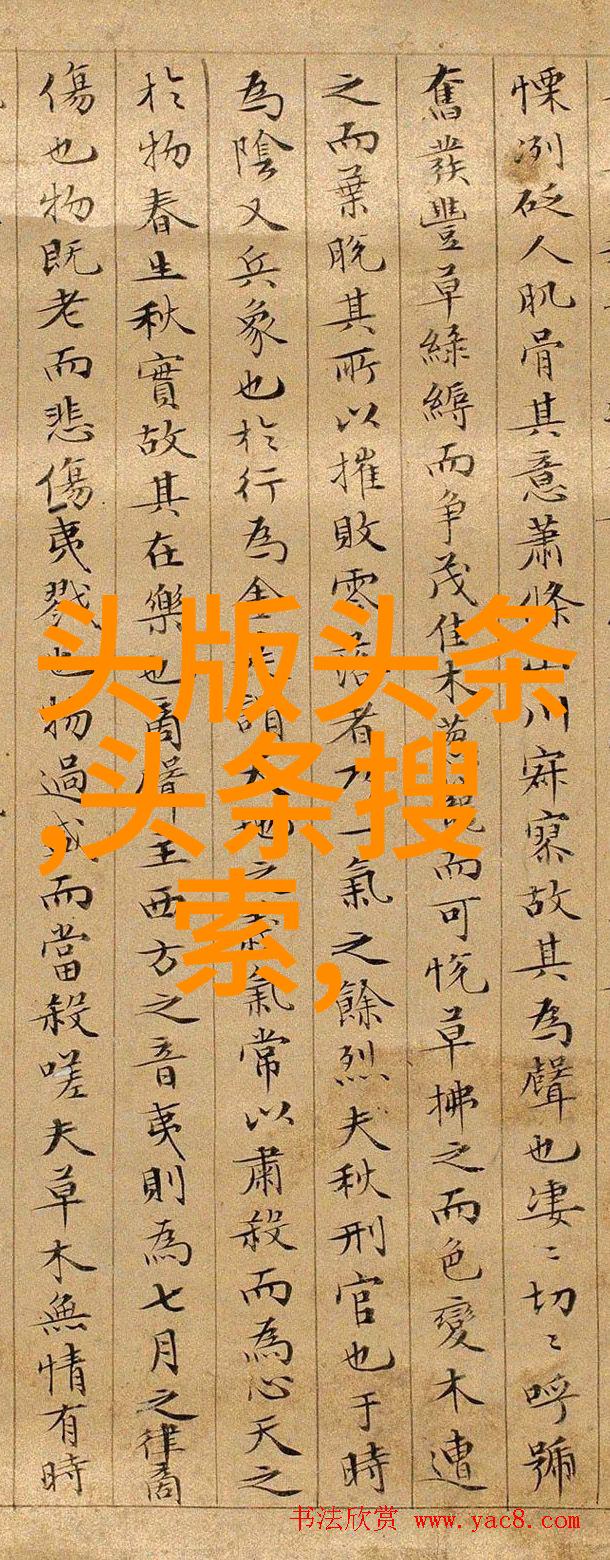 慄冽砭人肌骨其意蕭條山川寂寥故其為聲也凄〻切〻呼號
奮發豐草綠縟而争茂佳木葱蘢而可悅草拂之而色變木遭
之而葉脫其所以摧敗零落者乃一氣之餘烈夫秋刑官也于時
為陰又兵象也於行為金是謂天地之義氣常以肅殺而為心天之
於物春生秋實故其在樂也商聲主西方之音夷則為七月之律商
傷也物既老而悲傷夷戮也物過盛而當殺嗟夫草木無情有時
头版头条
,头条搜
索,
书法欣赏 www.yac8.com